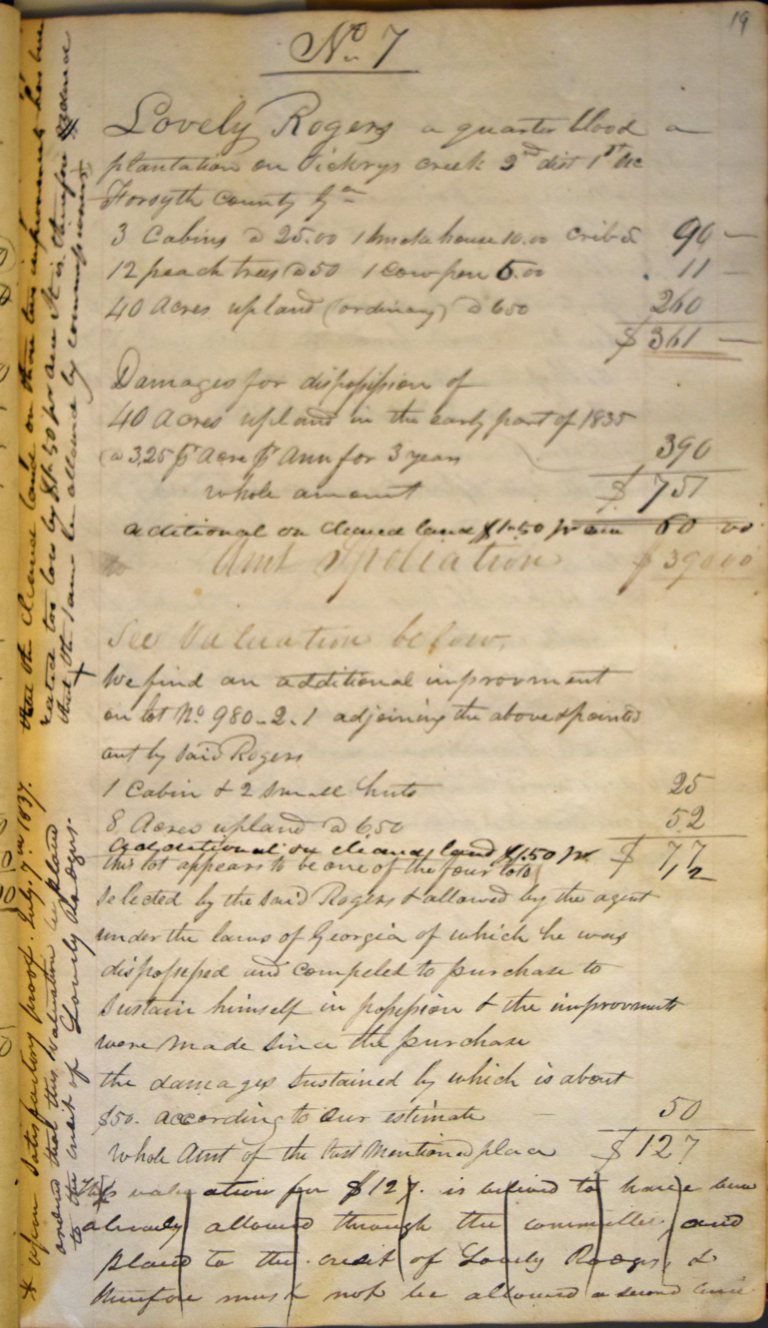 19
No. 7
Lovely Rogers a quarter blood a
plantation on Vickrys creek 2nd dist 1st Sec
Forsyth County Ga
3 Cabins @ 25.00 1 smoke house 10.00 crib 5. 90 —
12 peach trees @ 50 1 Cow pen 5.00 11 —
40 Acres upland (ordinary) @ 6 50 260
$ 361 —
Damages for dispossession of
40 Acres upland in the early part of 1835
@ 3,25 pr Acre pr Ann for 3 years 390
whole amount $ 751
aditional on cleared land $1.50 pr 60 00
Amt Spoliation $ 390 00
See Valuation below,
We find an additional improvment
on lot No. 980-2-1 adjoining the above & pointed
out by said Rogers
1 Cabin & 2 small huts 25
8 Acres upland @ 6,50 52
additional on cleared land $1.50 pr $ 77
this lot appears to be one of the four lots 12
selected by the said Rogers & allowed by the agent
under the laws of Georgia of which he was
dispossessed and compeled to purchase to
sustain himself in possession & the improvments
were made since the purchase
the damages sustained by which is about
$50. according to our estimate — 50
Whole Amt of the last Mentioned place $ 127
This valuation for $127. is believed to have been
already allowed through the committee, and
placed to the credit of Lovely Rogers, &
therefore must not be allowed a second time
* upon satisfactory proof. July. 7th 1837. that the cleared land on those two improvements has been
rated too low by $1.50 pr acre It is therefore ordered
that the same be allowed by commissioners
ordered that this valuation be placed
to the credit of Lovely Rodgers.